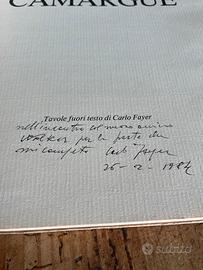 CAMARGUE
Tavole fuori testo di Carlo Fayer
nell'incontro col nuovo amico
per la parte che
mi compete Carlo Fayer
26-2-1984
subito